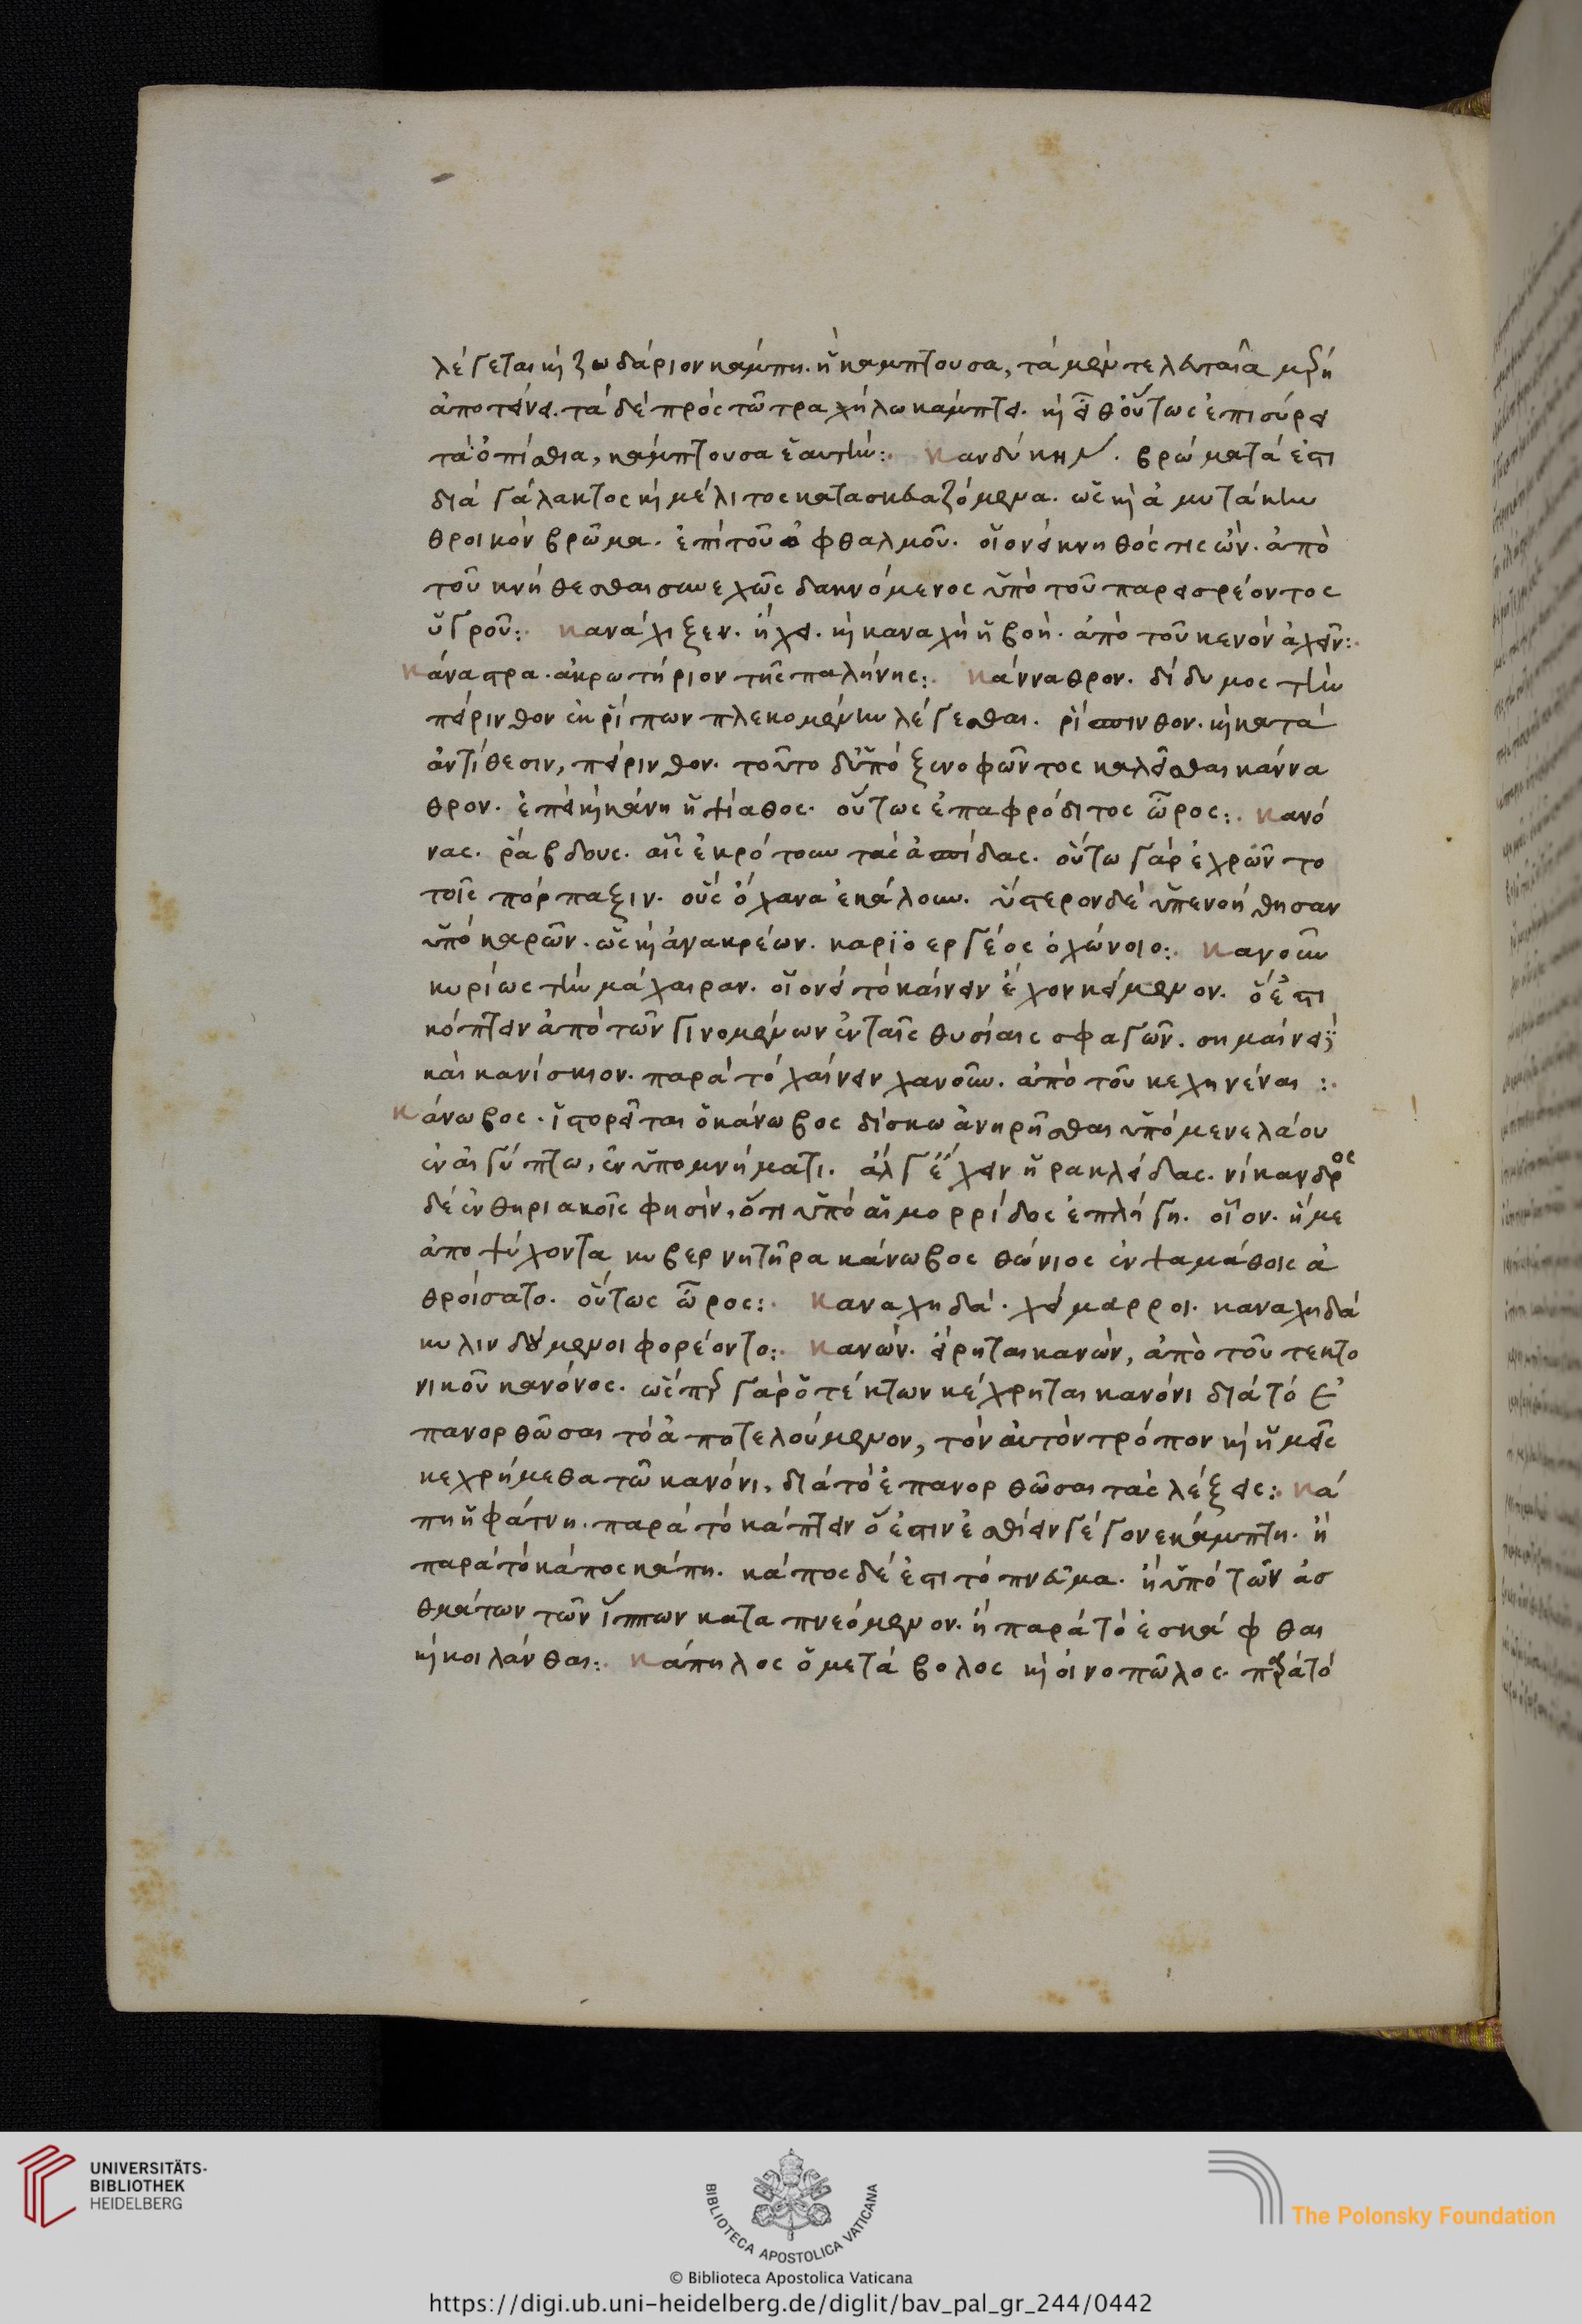 λέγεται καὶ ζωδάριον κάμπη. ἡ κάμπτουσα, τὰ μὲν τελευταῖα μέρη
ἀποτείνει. τὰ δὲ πρὸς τῶ τραχήλω κάμπτει. καὶ εἶθ' οὕτως ἐπισύρει
τὰ ὀπίσθια, κάμπτουσα ἑαυτήν:. κανδύκην. βρώματά ἐστι
διὰ γάλακτος καὶ μέλιτος κατασκευαζόμενα. ὡς καὶ ἀμυτάκην
θροικὸν βρῶμα. ἐπὶ τοῦ ὀφθαλμοῦ. οἱονεὶ κνηθός τις ὤν. ἀπὸ
τοῦ κνήθεσθαι συνεχῶς δακνόμενος ὑπὸ τοῦ παρεισρέοντος
ὑγροῦ:. κανάχιξεν. ἤχει. καὶ καναχὴ ἡ βοή. ἀπὸ τοῦ κενὸν ἀχεῖν:.
κάναστρα. ἀκρωτήριον τῆς παλήνης:. κάνναθρον. δίδυμος τὴν
πείρινθον ἐκ ῥίπων πλεκομένην λέγεσθαι. ῥίπινθον. καὶ κατὰ
ἀντίθεσιν, πείρινθον. τοῦτο δ' ὑπὸ ξενοφῶντος καλεῖσθαι κάννα
θρον. ἐπεὶ καὶ κάνη ἡ ψίαθος. οὕτως ἐπαφρόδιτος ὦρος:. κανό
νας. ῥάβδους. αἷς ἐκρότουν τὰς ἀσπίδας. οὕτω γὰρ ἐχρῶντο
τοῖς πόρπαξιν. οὓς ὄχανα ἐκάλουν. ὕστερον δὲ ὑπενοήθησαν
ὑπὸ καρῶν. ὡς καὶ ἀνακρέων. καριοεργέος ὀχώνοιο:. κανοῦν
κυρίως τὴν μάχαιραν. οἱονεὶ τὸ καίνειν ἔχον κείμενον. ὅ ἐστι
κόπτειν ἀπὸ τῶν γινομένων ἐν ταῖς θυσίαις σφαγῶν. σημαίνει
καὶ κανίσκιον. παρὰ τὸ χαίνειν χανοῦν. ἀπὸ τοῦ κεχηνέναι :.
κάνωβος. ἱστορεῖται ὁ κάνωβος δίσκω ἀνηρῆσθαι ὑπὸ μενελάου
ἐν αἰγύπτω, ἐν ὑπομνήματι. ἀλγε ἔχειν ἡρακλείδας. νίκανδρος
δὲ ἐν θηριακοῖς φησὶν, ὅτι ὑπὸ αἱμορρίδος ἐπλήγη. οἷον. ἤμε
ἀποψύχοντα κυβερνητῆρα κάνωβος θώνιος ἐν ψαμάθοις ἀ
θροίσατο. οὕτως ὦρος:. καναχηδά. χείμαρροι. καναχηδὰ
κυλινδούμενοι φορέοντο:. κανών. εἴρηται κανών, ἀπὸ τοῦ τεκτο
νικοῦ κανόνος. ὥσπερ γὰρ ὁ τέκτων κέχρηται κανόνι διὰ τὸ ἐ
πανορθῶσαι τὸ ἀποτελούμενον, τὸν αὐτὸν τρόπον καὶ ἡμεῖς
κεχρήμεθα τῶ κανόνι, διὰ τὸ ἐπανορθῶσαι τὰς λέξεις:. κά
πη ἡ φάτνη. παρὰ τὸ κάπτειν ὅ ἐστιν ἐσθίειν γέγονε κάμπτη. ἢ
παρὰ τὸ κάπος κάπη. κάπος δέ ἐστι τὸ πνεῦμα. ἢ ὑπὸ τῶν ἀσ
θμάτων τῶν ἵππων καταπνεόμενον. ἢ παρὰ τὸ ἐσκάφθαι
καὶ κοιλάνθαι:. κάπηλος ὁ μετάβολος καὶ οἰνοπῶλος. παρὰ τὸ
UNIVERSITÄTS-
BIBLIOTHEK
HEIDELBERG
BIBLIOTECA APOSTOLICA VATICANA
The Polonsky Foundation
© Biblioteca Apostolica Vaticana
https://digi.ub.uni-heidelberg.de/diglit/bav_pal_gr_244/0442